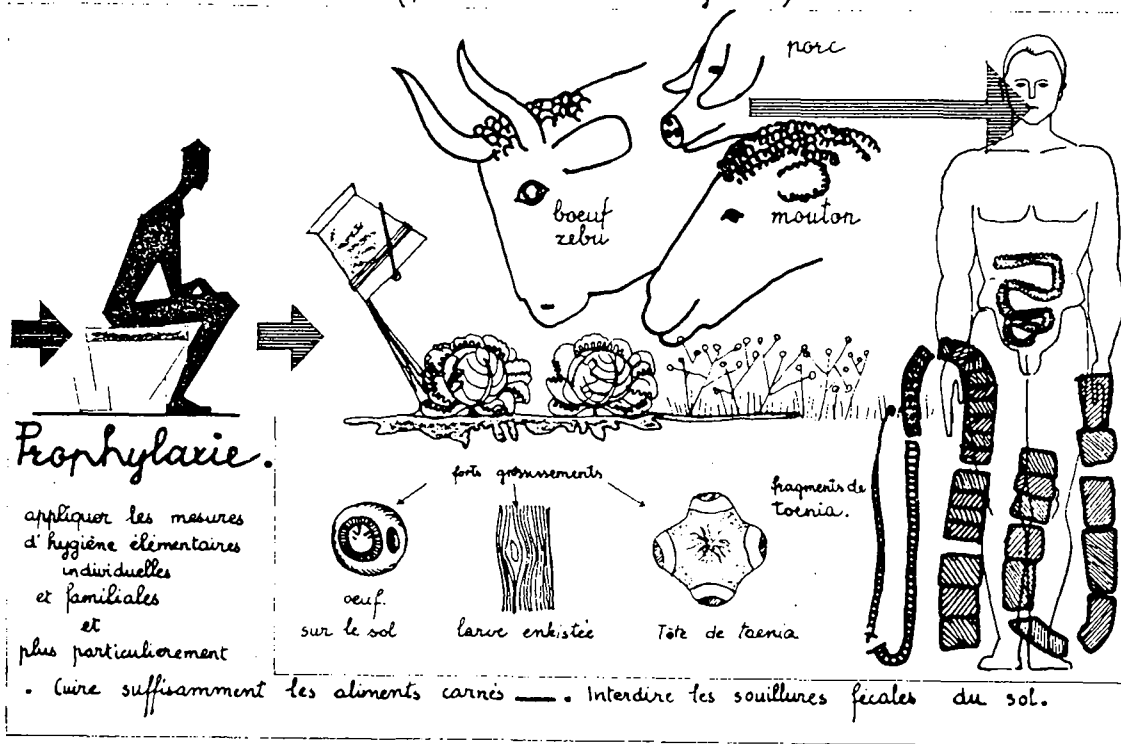 porc
boeuf
zebu
mouton
Prophylaxie.
appliquer les mesures
d'hygiène élémentaires
individuelles
et familiales
et
plus particulierement
forts grossissements
fragments de
toenia.
oeuf.
sur le sol
larve enkistée
Tête de taenia
. Cuire suffisamment les aliments carnés —. Interdire les souillures fécales du sol.